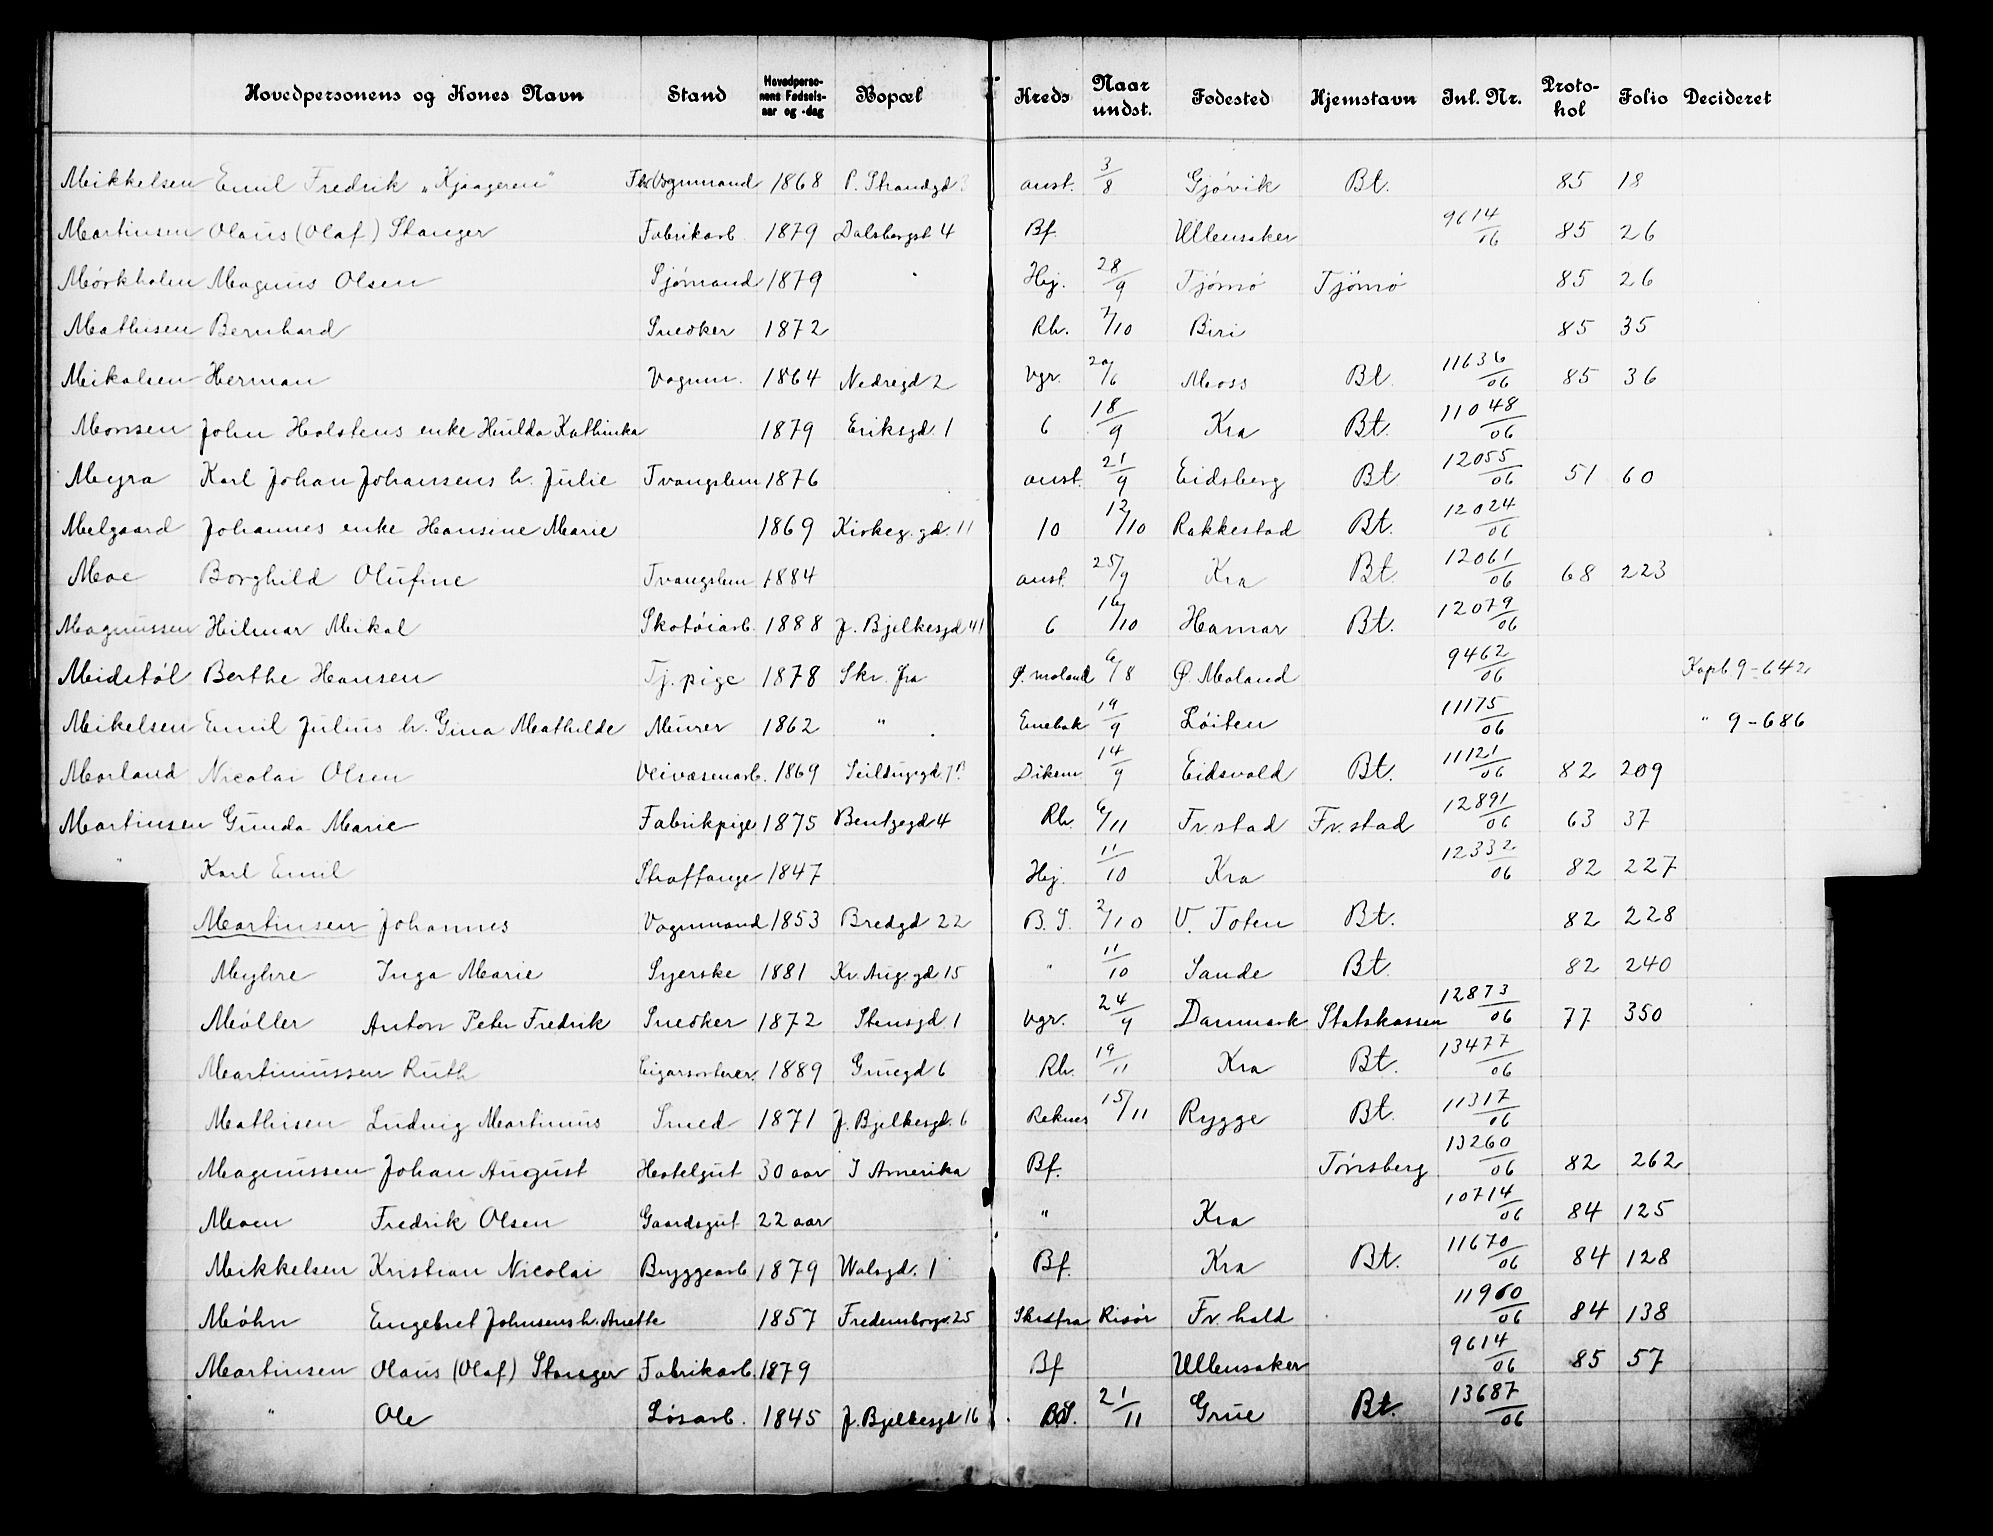 Hovedpersonens og Kones Navn Stand Hovedperso-nens Fødsels-aar og -dag Bopæl Kreds Naar undst. Fødested Hjemstavn Inl. Nr. Proto-kol Folio Decideret
Mikkelsen Emil Fredrik „Kjaageren“ Vognmand 1868 P. Strandgd anst. 3/8 Gjøvik Bt. 85 18
Martinsen Olaus (Olaf) Stanger Fabrikarb. 1879 Dalsbergst 4 Bf. Ullensaker 9614/06 85 26
Mørkholm Magnus Olsen Sjømand 1879 Hej. 28/9 Tjømø Tjømø 85 26
Mathisen Bernhard Snedker 1872 Rh. 7/10 Biri 85 35
Mikalsen Herman Vognm. 1864 Nedregd 2 Vgr. 20/6 Moss Bt. 11636/06 85 36
Monsen John Holstens enke Hulda Kathinka 1879 Eriksgd. 1 6 18/9 Kra Bt. 11048/06
Meyra Karl Johan Johansens h. Julie Tvangslem 1876 anst. 21/9 Eidsberg Bt 12055/06 51 60
Melgaard Johannes enke Hansine Marie 1869 Kirkeg. gd. 11 10 12/10 Rakkestad Bt. 12024/06
Moe Borghild Olufine Tvangslem 1884 anst. 25/9 Kra Bt. 12061/06 68 223
Magnussen Hilmar Mikal Skotøiarb. 1888 J. Bjelkesgd 41 6 16/10 Hamar Bt. 12079/06
Meidstøl Berthe Hansen Tj. pige 1878 Skr. fra Ø. moland 6/8 Ø. Moland 9462/06 Kopb 9-642
Mikelsen Emil Julius h. Gina Mathilde Murer 1862 " Enebak 19/9 Løiten 11175/06 " 9-686
Morland Nicolai Olsen Veivæsenarb. 1869 Seildugsgd 7 B Dikem. 14/9 Eidsvold Bt. 11121/06 82 209
Martinsen Gunda Marie Fabrikpige 1875 Bentzegd 4 Rh. 6/11 Fr.stad Fr.stad 12891/06 63 37
" Karl Emil Straffange 1847 Hej. 11/10 Kra 12332/06 82 227
Martinsen Johannes Vognmand 1853 Bredgd 22 B. S. 2/10 V. Toten Bt. 82 228
Myhre Inga Marie Syerske 1881 Kr. Aug. gd 15 " 11/10 Sande Bt. 82 240
Møller Anton Peter Fredrik Snedker 1872 Stensgd 1 Vgr. 24/9 Danmark Statskassen 12873/06 77 350
Martinussen Ruth Cigarsorterer. 1889 Gruegd 6 Rh. 19/11 Kra Bt. 13477/06
Mathisen Ludvig Martinius Smed 1871 J. Bjelkesgd. 6 Reknes 15/11 Rygge Bt. 11317/06
Magnussen Johan August Hotelgut 30 aar I Amerika Bf. Tønsberg 13260/06 82 262
Moen Fredrik Olsen Gaardsgut 22 aar " Kra 10714/06 84 125
Mikkelsen Kristian Nicolai Bryggearb 1879 Walsgd. 1 Bf. Kra Bt. 11670/06 84 128
Møhn Engebret Johnsens h. Anette 1857 Fredensborgv. 25 Skrstfra Risør Fr.hald 11960/06 84 138
Martinsen Olaus (Olaf) Stanger Fabrikarb. 1879 Bf Ullensaker 9614/06 85 57
" Ole Løsarb. 1845 J. Bjelkesgd 16 21/11 Grue Bt. 13687/06